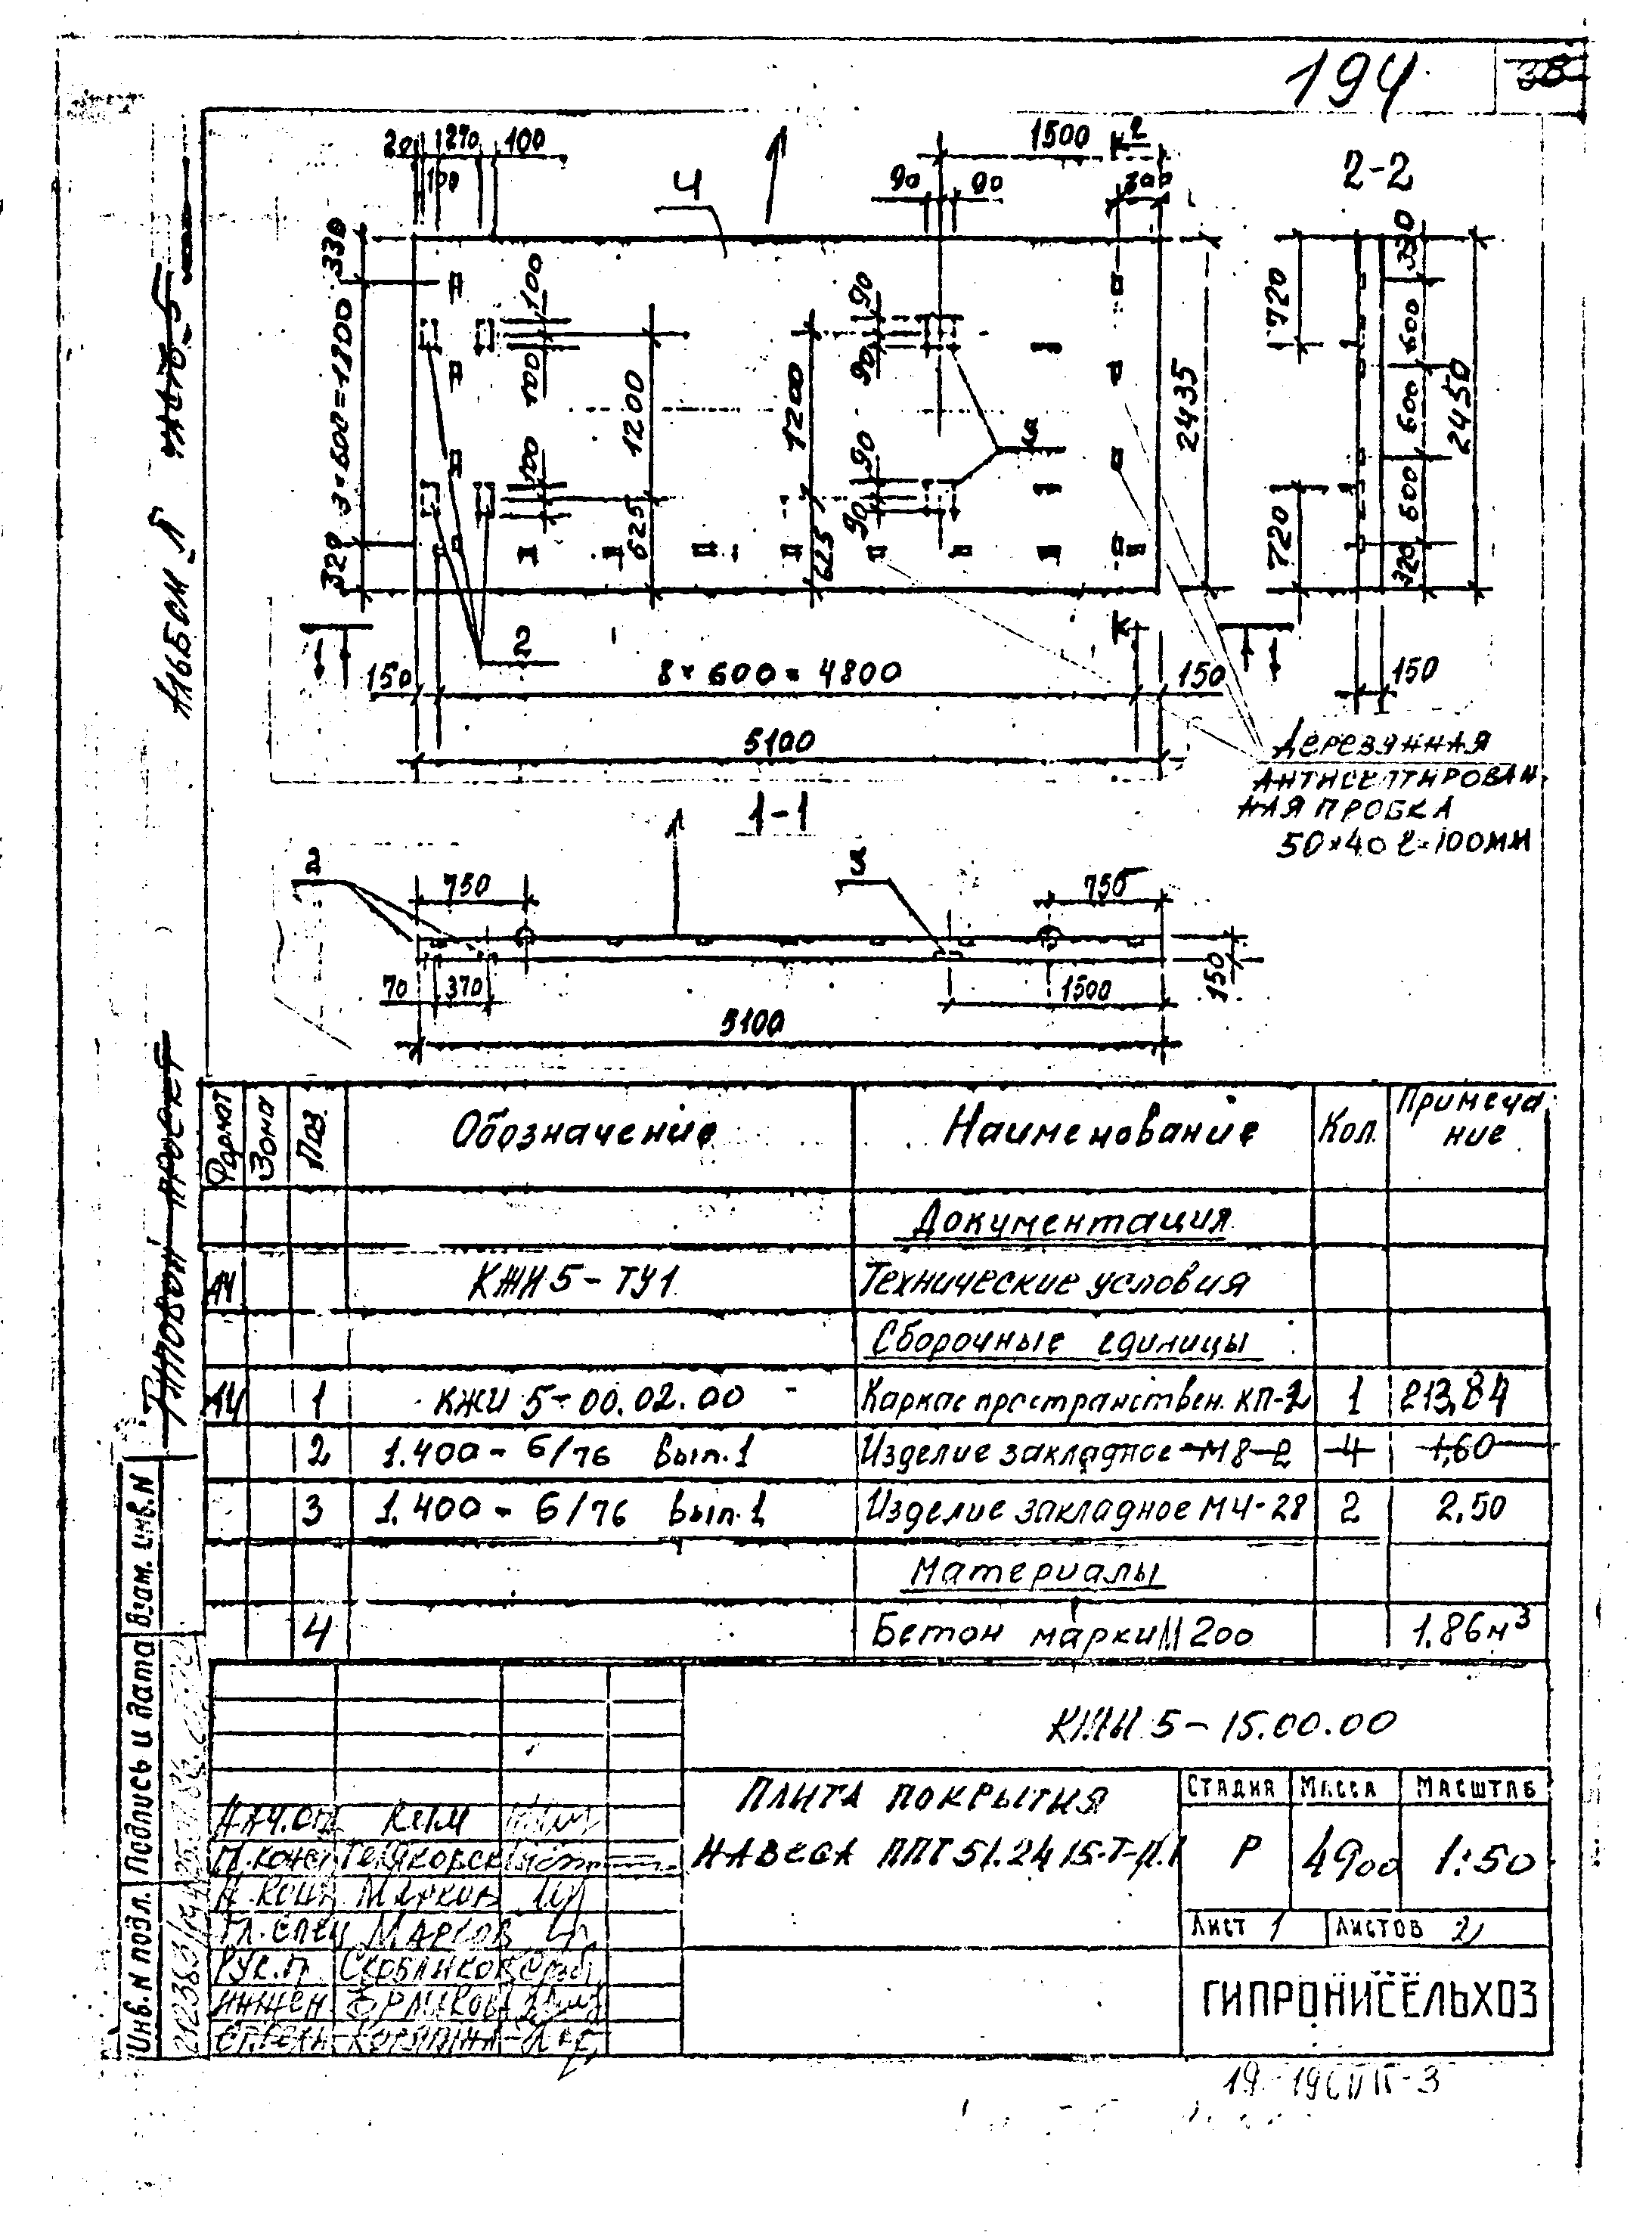 194
38
20 270 100
100
4
1500
90 90
300
2-2
330
3×600=1800
320
100
100
100
1200
625
1200
625
90
90
90
90
2435
720
720
330
600
600
600
320
2450
2
150
8×600=4800
150
150
5100
Деревянная
антисептирован
ная пробка
50×40 ℓ=100мм
1-1
2
3
750
750
70
370
1500
150
5100
Альбом
Типовой проект
Формат
Зона
Поз.
Обозначение
Наименование
Кол.
Примеча
ние
Документация
А4 КЖИ 5-ТУ1 Технические условия
Сборочные единицы
А4 1 КЖИ 5-00.02.00 Каркас пространствен. КП-2 1 213,84
2 1.400-6/76 Вып.1 Изделие закладное М8-2 4 1,60
3 1.400-6/76 Вып.1 Изделие закладное М4-28 2 2.50
Материалы
4 Бетон марки М 200 1.86м³
КЖИ 5-15.00.00
Плита покрытия
навеса ППТ 51.24 15-Т-П.1
Стадия Масса Масштаб
Р 4900 1:50
Лист 1 Листов 2
ГИПРОНИСЕЛЬХОЗ
Нач.отд. Ким
Н.конт. Марков
Гл.спец Марков
Рук.гр.
Инжен.
Инв. N подл.
Подпись и дата
Взам. инв. N